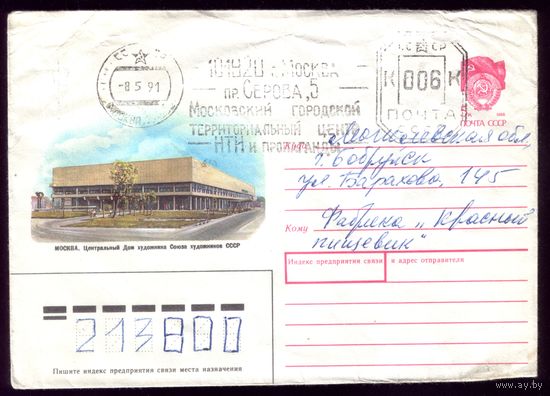 -8 5 91
101820 г. МОСКВА
ПР. СЕРОВА, 5
МОСКОВСКИЙ ГОРОДСКОЙ
ТЕРРИТОРИАЛЬНЫЙ ЦЕНТР
НТИ и ПРОПАГАНДЫ
СССР
К 006 К
ПОЧТА
ПОЧТА СССР
Куда Могилевская обл,
г. Бобруйск
ул. Бахарова, 145
Кому Фабрика „Красный
пищевик"
МОСКВА. Центральный Дом художника Союза художников СССР
Индекс предприятия связи и адрес отправителя
213800
Пишите индекс предприятия связи места назначения
www.ay.by